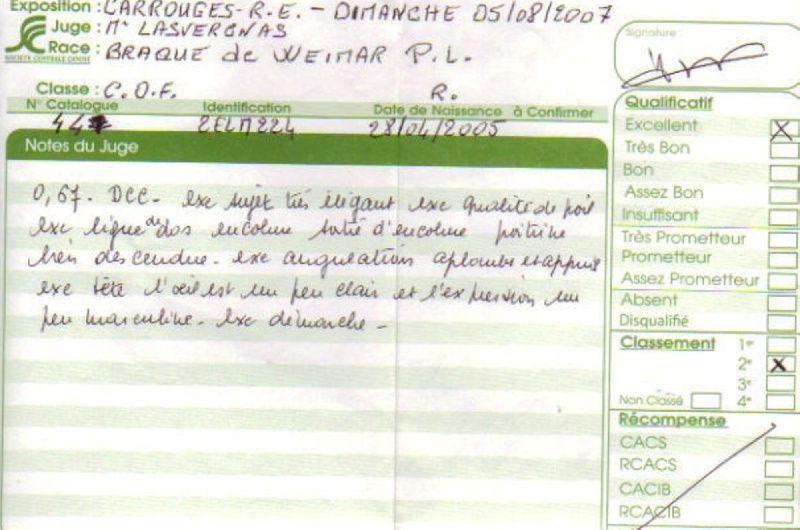 Exposition : CARROUGES - R.E. - DIMANCHE 05/08/2007
Juge : Mr LASVERGNAS
SOCIÉTÉ CENTRALE CANINE
Race : BRAQUE de WEIMAR P.L.
Classe : C.O.F. R.
N° Catalogue Identification Date de Naissance à Confirmer
44 2ELM224 28/04/2005
Notes du Juge
0,67. DCC. exc sujet très élégant exc qualité de poil
exc ligne de dos encolure sortie d'encolure poitrine
bien descendue. exc angulation aplombs et appuis
exc tête l'oeil est un peu clair et l'expression un
peu masculine. exc démarche -
Signature :
Qualificatif
Excellent X
Très Bon
Bon
Assez Bon
Insuffisant
Très Prometteur
Prometteur
Assez Prometteur
Absent
Disqualifié
Classement 1er
2e X
3e
Non Classé 4e
Récompense
CACS
RCACS
CACIB
RCACIB